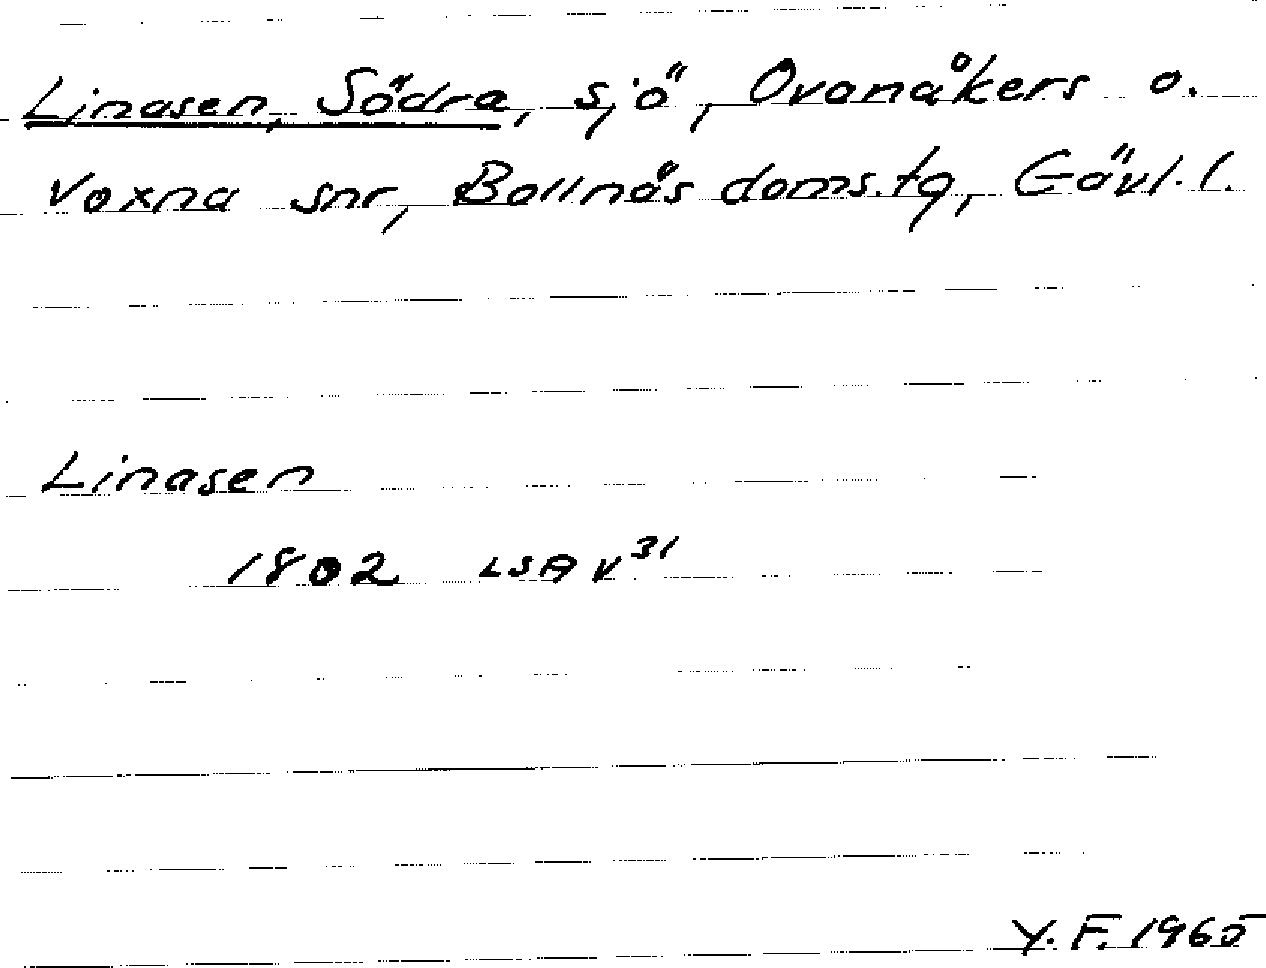 Linasen, Södra, sjö, Ovanåkers o.
Voxna snr, Bollnäs doms.tg, Gävl. l.
Linasen
1802 LSA V31
Y. F. 1965